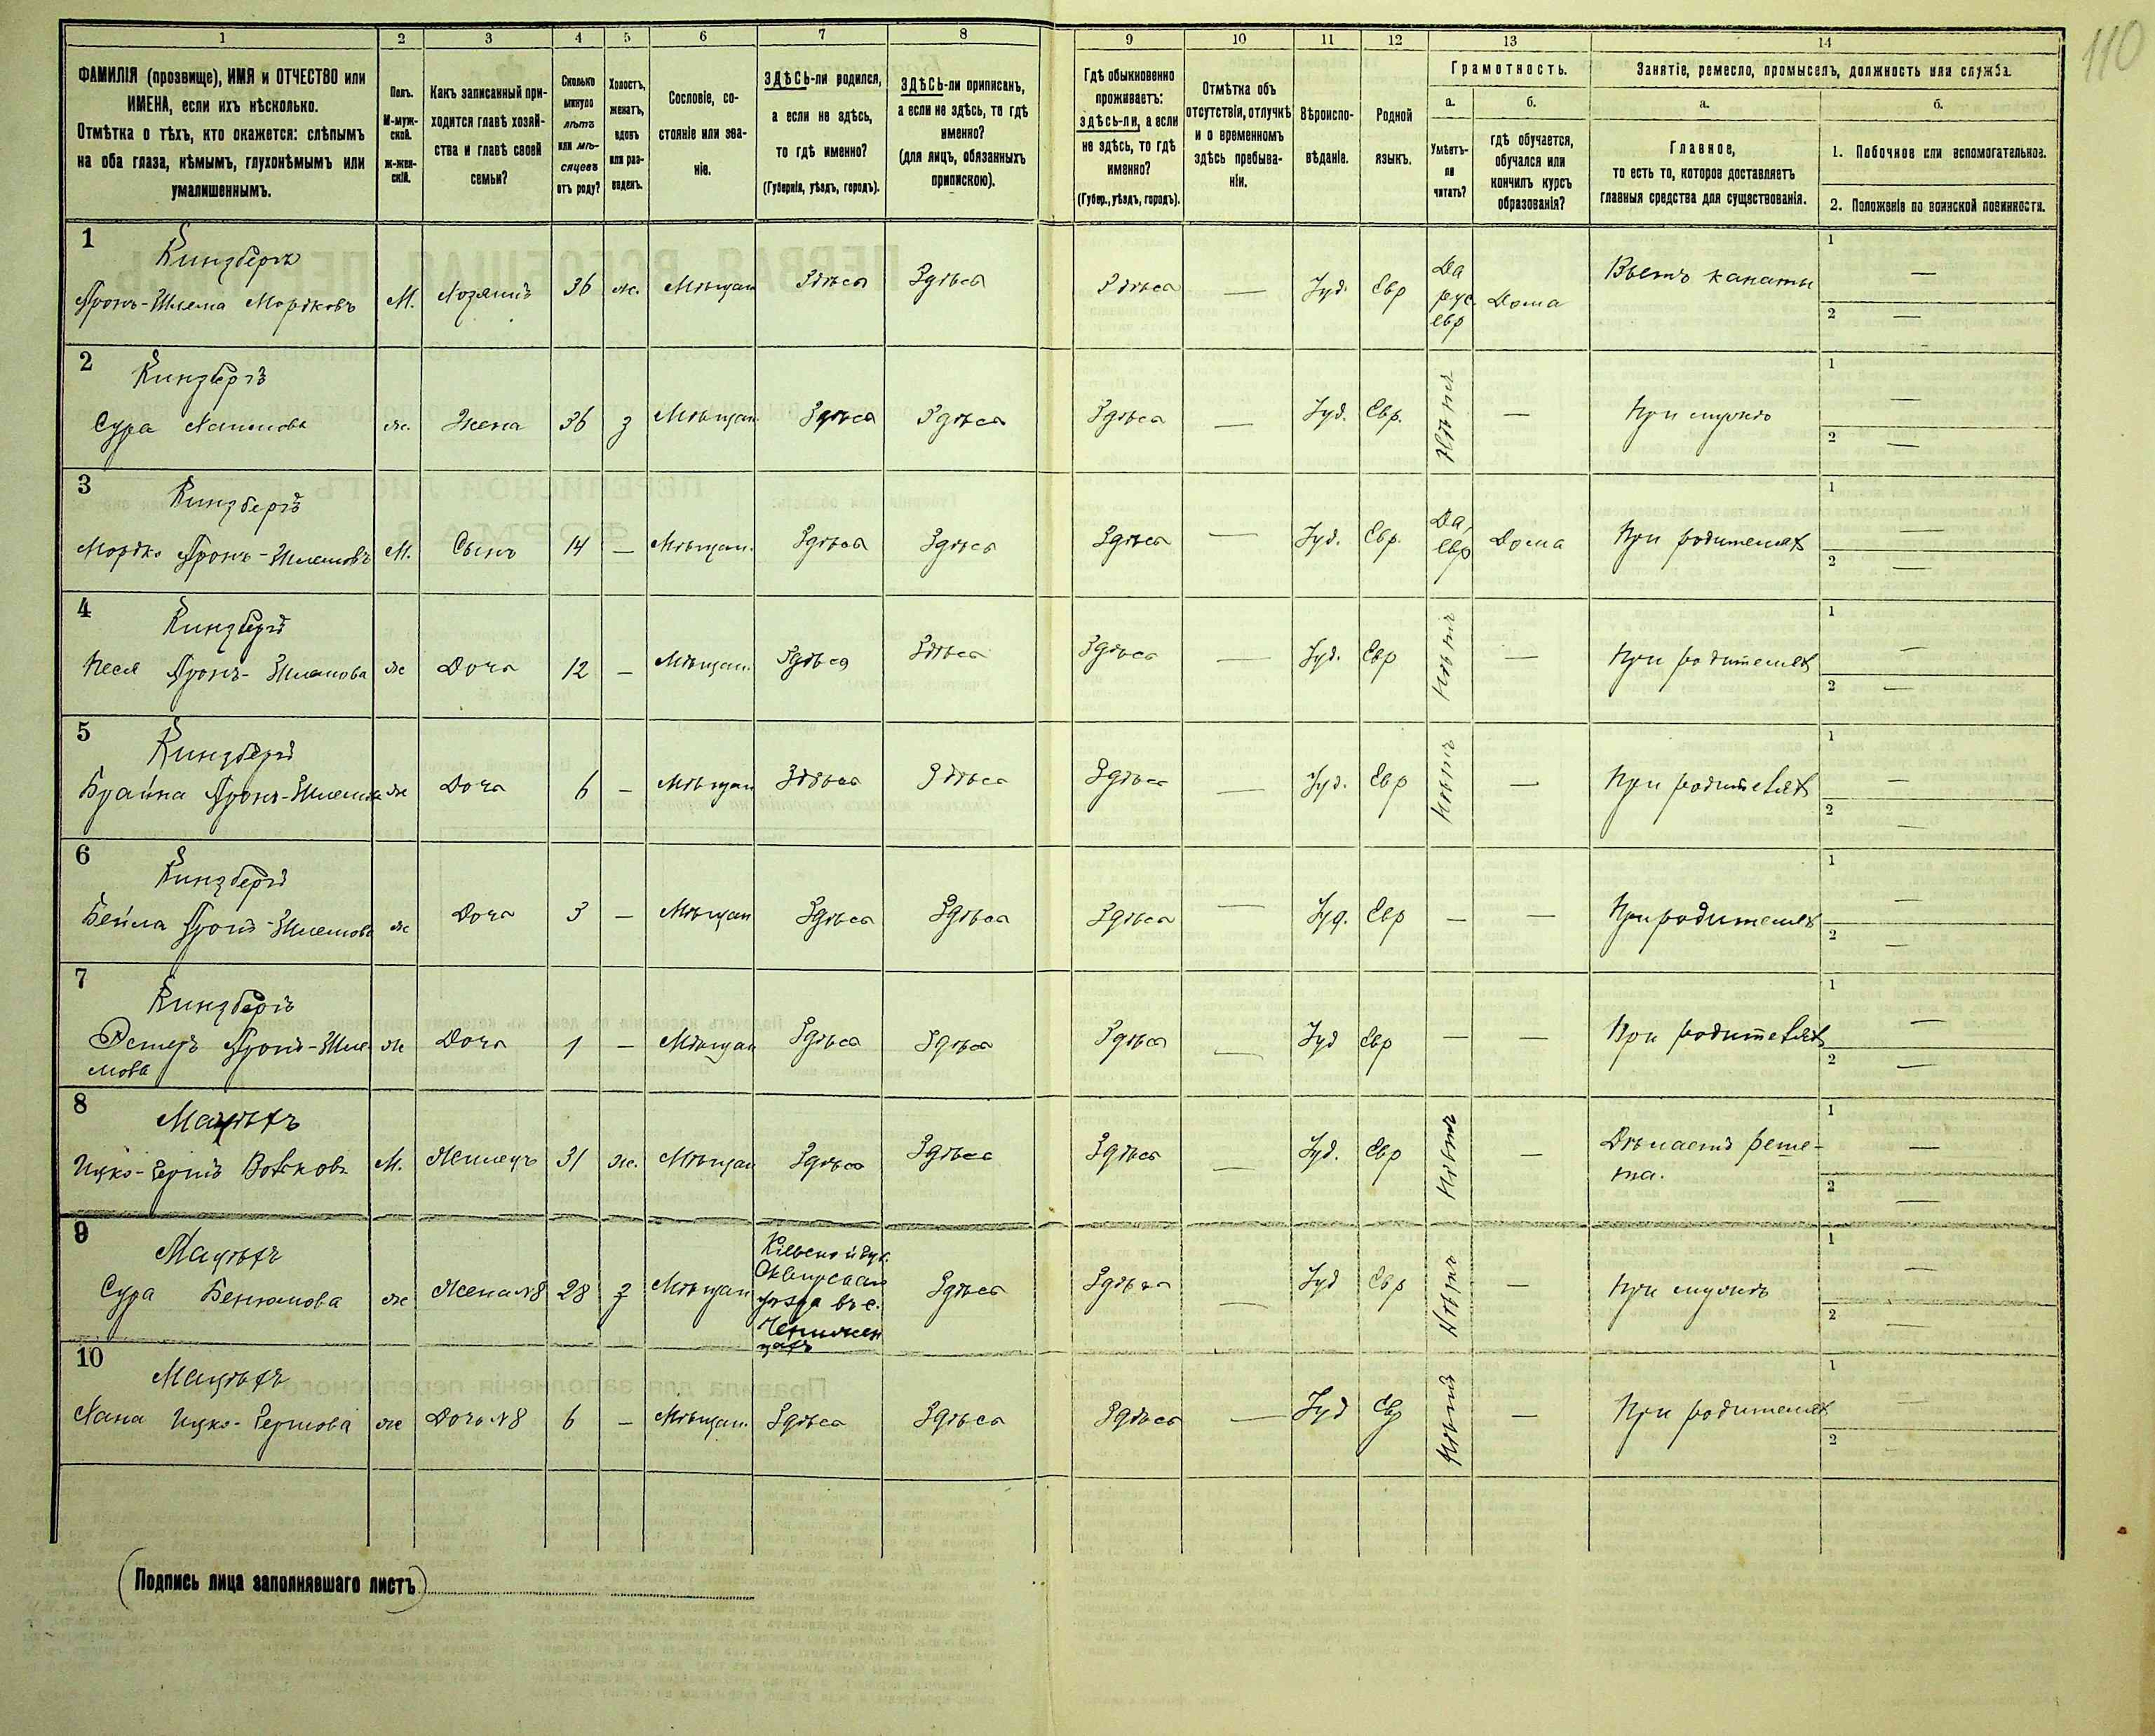 110
1 2 3 4 5 6 7 8 9 10 11 12 13 14
ФАМИЛІЯ (прозвище), ИМЯ и ОТЧЕСТВО или
ИМЕНА, если ихъ нѣсколько.
Отмѣтка о тѣхъ, кто окажется: слѣпымъ
на оба глаза, нѣмымъ, глухонѣмымъ или
умалишеннымъ.
Полъ.
М-муж-
ской.
Ж-жен-
скій.
Какъ записанный при-
ходится главѣ хозяй-
ства и главѣ своей
семьи?
Сколько
минуло
лѣтъ
или мѣ-
сяцевъ
отъ роду?
Холостъ,
женатъ,
вдовъ
или раз-
веденъ.
Сословіе, со-
стояніе или зва-
ніе.
ЗДѢСЬ-ли родился,
а если не здѣсь,
то гдѣ именно?
(Губернія, уѣздъ, городъ).
ЗДѢСЬ-ли приписанъ,
а если не здѣсь, то гдѣ
именно?
(для лицъ, обязанныхъ
припискою).
Гдѣ обыкновенно
проживаетъ:
здѣсь-ли, а если
не здѣсь, то гдѣ
именно?
(Губер., уѣздъ, городъ).
Отмѣтка объ
отсутствіи, отлучкѣ
и о временномъ
здѣсь пребыва-
ніи.
Вѣроиспо-
вѣданіе.
Родной
языкъ.
Грамотность.
а.
Умѣетъ-
ли
читать?
б.
гдѣ обучается,
обучался или
кончилъ курсъ
образованія?
Занятіе, ремесло, промыселъ, должность или служба.
а.
Главное,
то есть то, которое доставляетъ
главныя средства для существованія.
б.
1. Побочное или вспомогательное.
2. Положеніе по воинской повинности.
1 Кинзбергъ
Аронъ-Шлема Мордковъ М. Хозяинъ 36 ж. Мѣщан Здѣсь Здѣсь Здѣсь — Іуд. Евр Да рус евр Дома Вьетъ канаты 1 — 2 —
2 Кинзбергъ
Сура Хаимова ж. Жена 36 з Мѣщан Здѣсь Здѣсь Здѣсь — Іуд. Евр. Нѣтъ — При мужѣ 1 — 2 —
3 Кинзбергъ
Мордко Аронъ-Шлемовъ М. Сынъ 14 — Мѣщан. Здѣсь Здѣсь Здѣсь — Іуд. Евр. Да, евр Дома При родителях 1 — 2 —
4 Кинзбергъ
Песя Аронъ-Шлемова ж Дочь 12 — Мѣщан. Здѣсь Здѣсь Здѣсь — Іуд. Евр Нѣтъ — При родителях 1 — 2 —
5 Кинзбергъ
Брайна Аронъ-Шлемова ж Дочь 6 — Мѣщан Здѣсь Здѣсь Здѣсь — Іуд. Евр Нѣтъ — При родителях 1 — 2 —
6 Кинзбергъ
Бейла Аронъ-Шлемова ж Дочь 3 — Мѣщан Здѣсь Здѣсь Здѣсь — Іуд. Евр — — При родителях 1 — 2 —
7 Кинзбергъ
Эстеръ Аронъ-Шле- ж Дочь 1 — Мѣщан Здѣсь Здѣсь Здѣсь — Іуд Евр — — При родителях 1 — 2 —
мова
8
Ицко-Гершъ Волковъ М. 31 ж. Мѣщан Здѣсь Здѣсь Здѣсь — Іуд. Евр Нѣтъ — Дѣлаетъ реше- 1 — 2 —
та.
9
Сура Бенюмова ж Жена №8 28 з Мѣщан Кіевской губ. уѣзда въ с. Здѣсь Здѣсь — Іуд Евр Нѣтъ — При мужѣ 1 — 2 —
10
Хана Ицко-Гершова ж Дочь №8 6 — Мѣщан. Здѣсь Здѣсь Здѣсь — Іуд Евр Нѣтъ — При родителях 1 — 2
(Подпись лица заполнявшаго листъ)